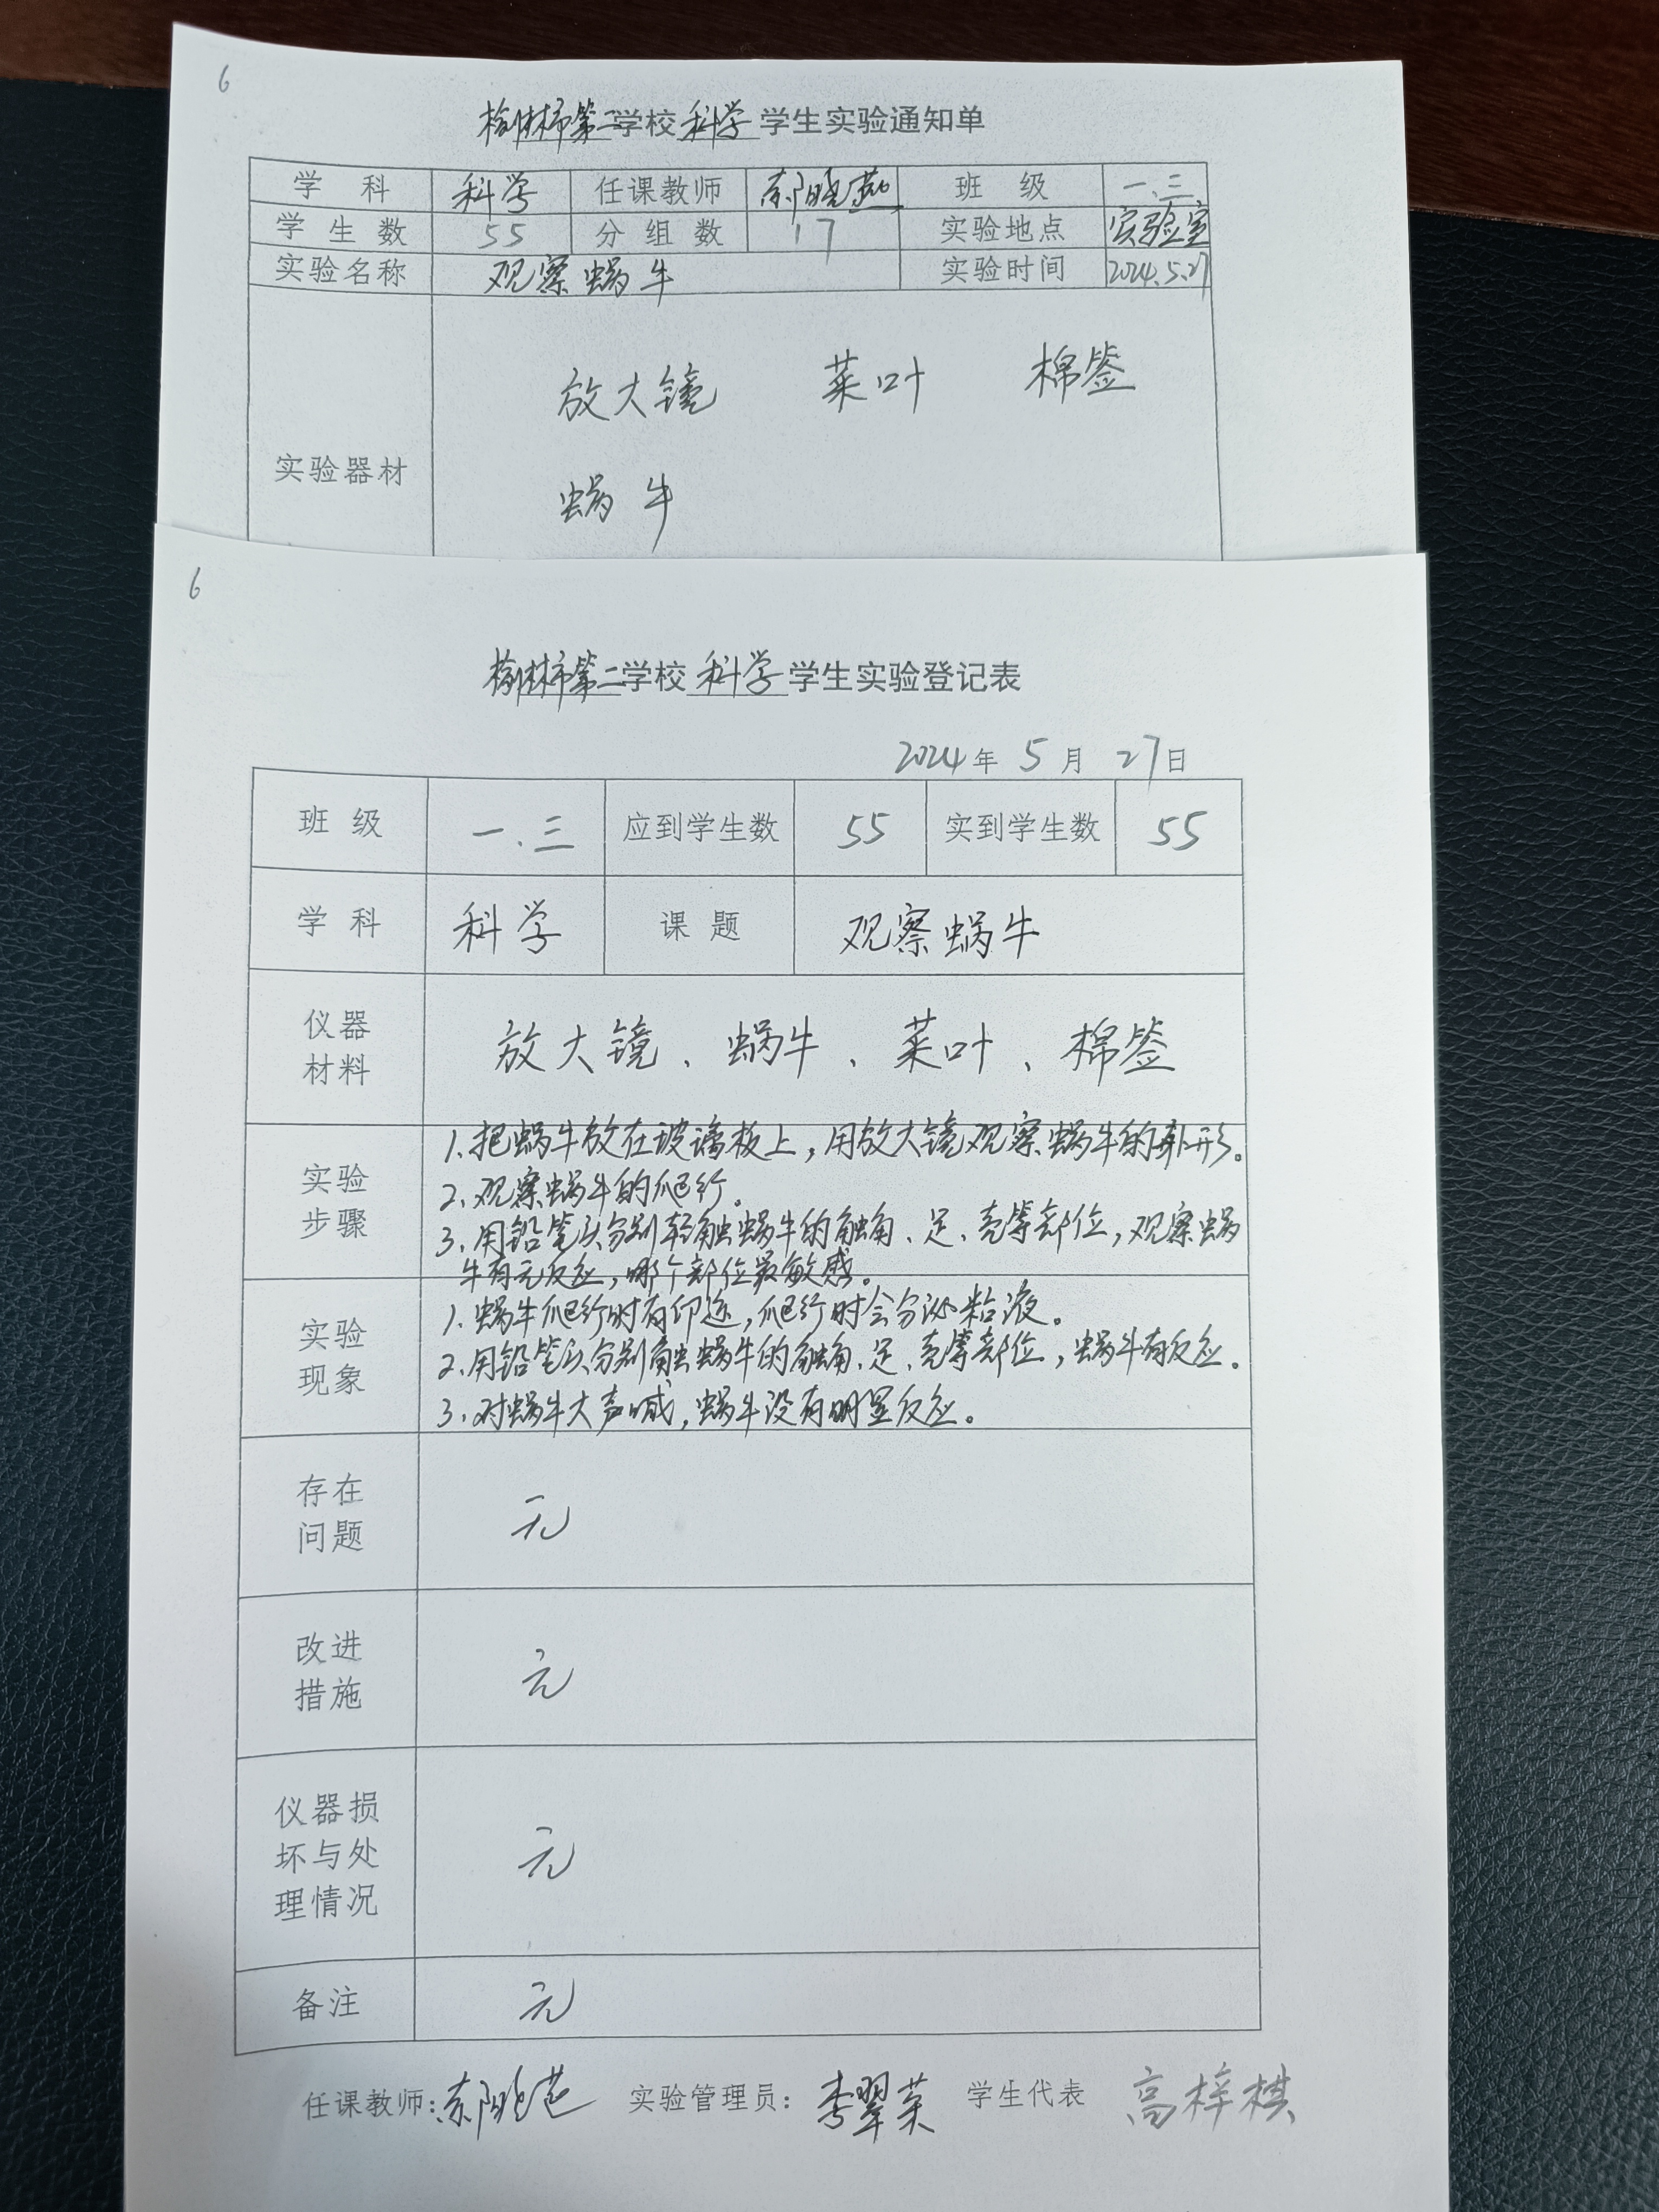 6
榆林市第二学校 科学 学生实验通知单
学 科 科学 任课教师 班 级 一.三
学 生 数 55 分 组 数 17 实验地点 实验室
实验名称 观察蜗牛 实验时间 2024.5.27
放大镜 菜叶 棉签
实验器材
蜗牛
6
榆林市第二学校 科学 学生实验登记表
2024年 5月 27日
班 级 一.三 应到学生数 55 实到学生数 55
学 科 科学 课 题 观察蜗牛
仪器
材料
放大镜、蜗牛、菜叶、棉签
实验
步骤
1.把蜗牛放在玻璃板上,用放大镜观察蜗牛的外形。
2.观察蜗牛的爬行。
3.用铅笔头分别轻触蜗牛的触角、足、壳等部位,观察蜗
牛有无反应,哪个部位最敏感。
实验
现象
1.蜗牛爬行时有印迹,爬行时会分泌粘液。
2.用铅笔头分别触蜗牛的触角、足、壳等部位,蜗牛有反应。
3.对蜗牛大声喊,蜗牛没有明显反应。
存在
问题
无
改进
措施
无
仪器损
坏与处
理情况
无
备注 无
任课教师: 实验管理员:李翠英 学生代表 高梓棋